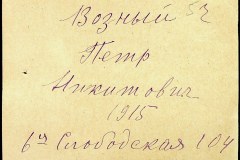 Возный 52
Петр
Никитович
1915
6ая Слободская 104